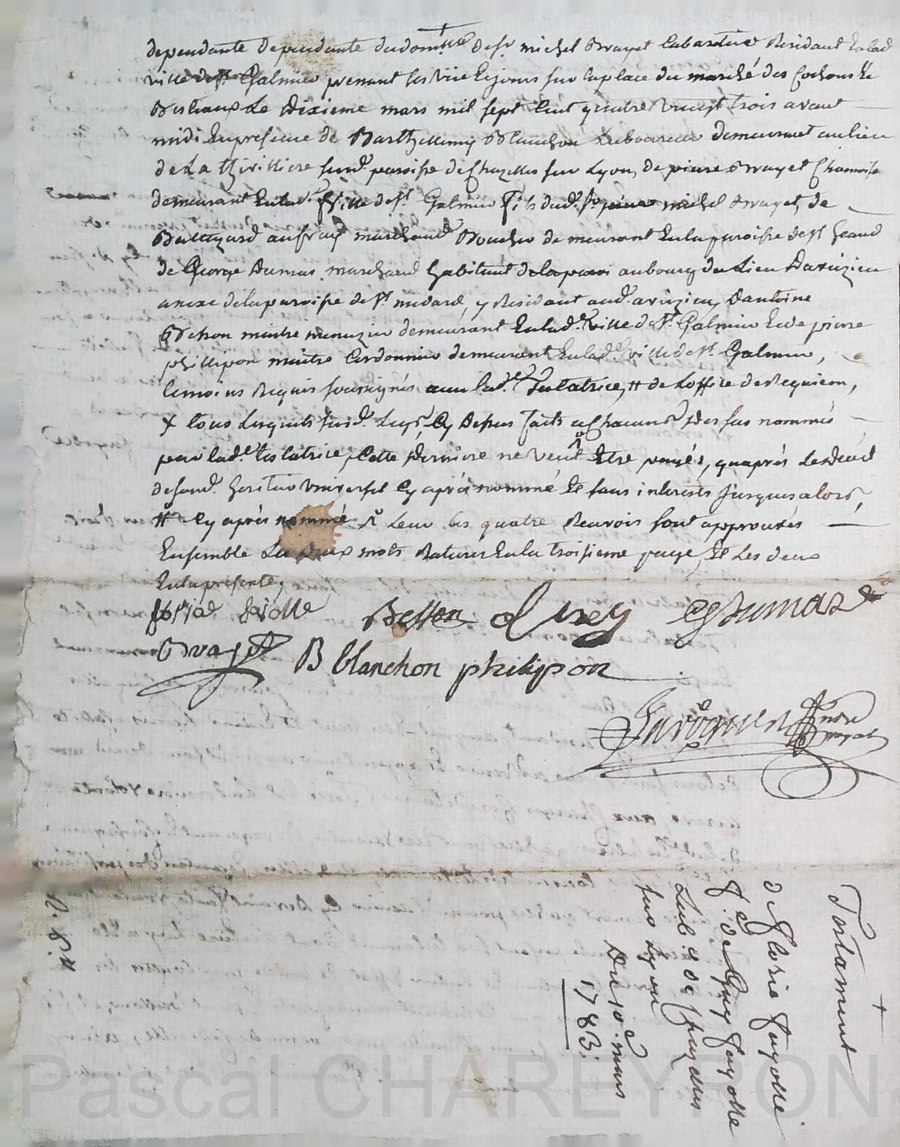 dependante dependante du dom.lle de Sr michel Bruyet Labardin Residant en lad.
ville de St Galmier prenant ses vüe & jours sur la place du marché des Cochons &
Bestiaux Le dixieme mars mil sept Cent quatre vingt trois avant
midi En presence de Barthellemy Blanchon Laboureur demeurant au lieu
de La Thivilliere susd. paroisse de Chazelles sur Lyon, de pierre Bruyet
demeurant En lad. ville de St Galmier fils dud. Sr michel Bruyet, de
Balthazard marchand Boucher demeurant En la paroisse de St
de George Dumas marchand habitant de la au bourg du Lieu Daveizieu
anexe de la paroisse de St medard, y Residant aud. aveizieu, Dantoine
maitre menuzier demeurant En lad. ville de St Galmier & de pierre
phillipon maitre Cordonnier demeurent En lad. ville de St Galmier,
temoins Requis soussignés avec lad. Testatrice, # de Loffice de Requiem,
& tous Lesquels susd. Legs Cy Dessus faits a chacuns des sus nommés
par lad. testatrice, Cette derniere ne veut Etre payés, quaprès Le décéd
de son d. heritier universel Cy après nommé Et sans interests jusques alors,
# Cy après nommé Leur les quatre Renvois sont approuvés
Ensemble Les deux mots Raturés En la troisieme page, Et Les deux
En la presente,
faiolle Besson Cg dumas
Bruyet B blanchon philipon
nore
royal
Testament
de Florie fayolle
f.e de Guy fayolle
Lab. de chazelles
sus Lyon
Du 10.e mars
1783.
Pascal CHAREYRON